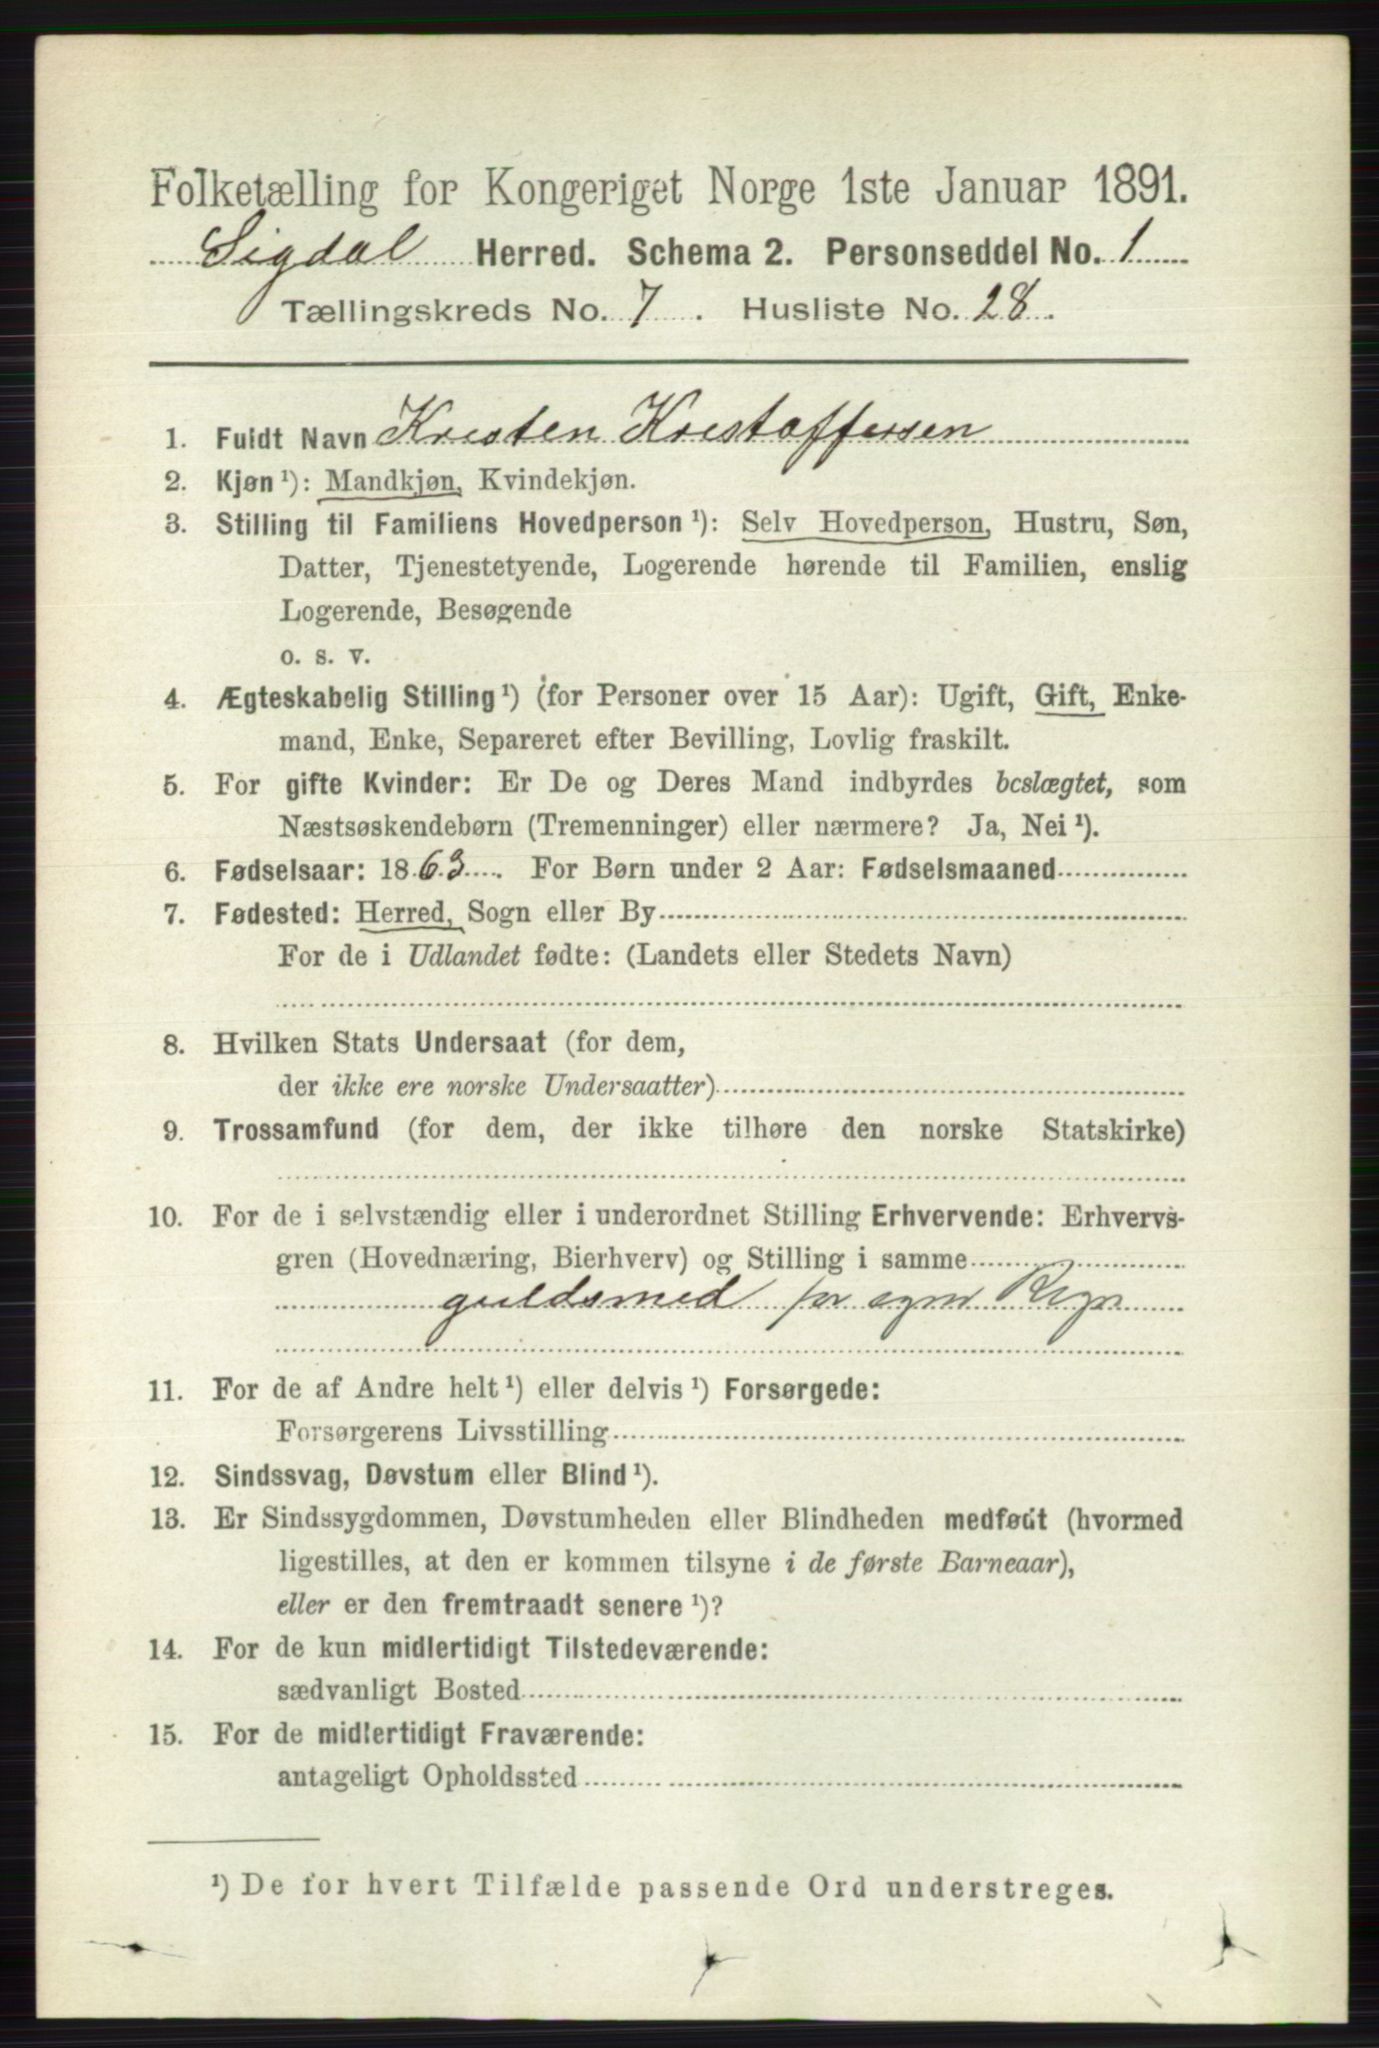 Folketælling for Kongeriget Norge 1ste Januar 1891.
Sigdal Herred. Schema 2. Personseddel No. 1
Tællingskreds No. 7. Husliste No. 28.
1. Fuldt Navn Kristen Kristoffersen
2. Kjøn ¹): Mandkjøn, Kvindekjøn.
3. Stilling til Familiens Hovedperson ¹): Selv Hovedperson, Hustru, Søn,
Datter, Tjenestetyende, Logerende hørende til Familien, enslig
Logerende, Besøgende
o. s. v.
4. Ægteskabelig Stilling ¹) (for Personer over 15 Aar): Ugift, Gift, Enke-
mand, Enke, Separeret efter Bevilling, Lovlig fraskilt.
5. For gifte Kvinder: Er De og Deres Mand indbyrdes beslægtet, som
Næstsøskendebørn (Tremenninger) eller nærmere? Ja, Nei ¹).
6. Fødselsaar: 1863. For Børn under 2 Aar: Fødselsmaaned
7. Fødested: Herred, Sogn eller By
For de i Udlandet fødte: (Landets eller Stedets Navn)
8. Hvilken Stats Undersaat (for dem,
der ikke ere norske Undersaatter)
9. Trossamfund (for dem, der ikke tilhøre den norske Statskirke)
10. For de i selvstændig eller i underordnet Stilling Erhvervende: Erhvervs-
gren (Hovednæring, Bierhverv) og Stilling i samme
guldsmed for egen Regn
11. For de af Andre helt ¹) eller delvis ¹) Forsørgede:
Forsørgerens Livsstilling
12. Sindssvag, Døvstum eller Blind ¹).
13. Er Sindssygdommen, Døvstumheden eller Blindheden medfødt (hvormed
ligestilles, at den er kommen tilsyne i de første Barneaar),
eller er den fremtraadt senere ¹)?
14. For de kun midlertidigt Tilstedeværende:
sædvanligt Bosted
15. For de midlertidigt Fraværende:
antageligt Opholdssted
¹) De for hvert Tilfælde passende Ord understreges.